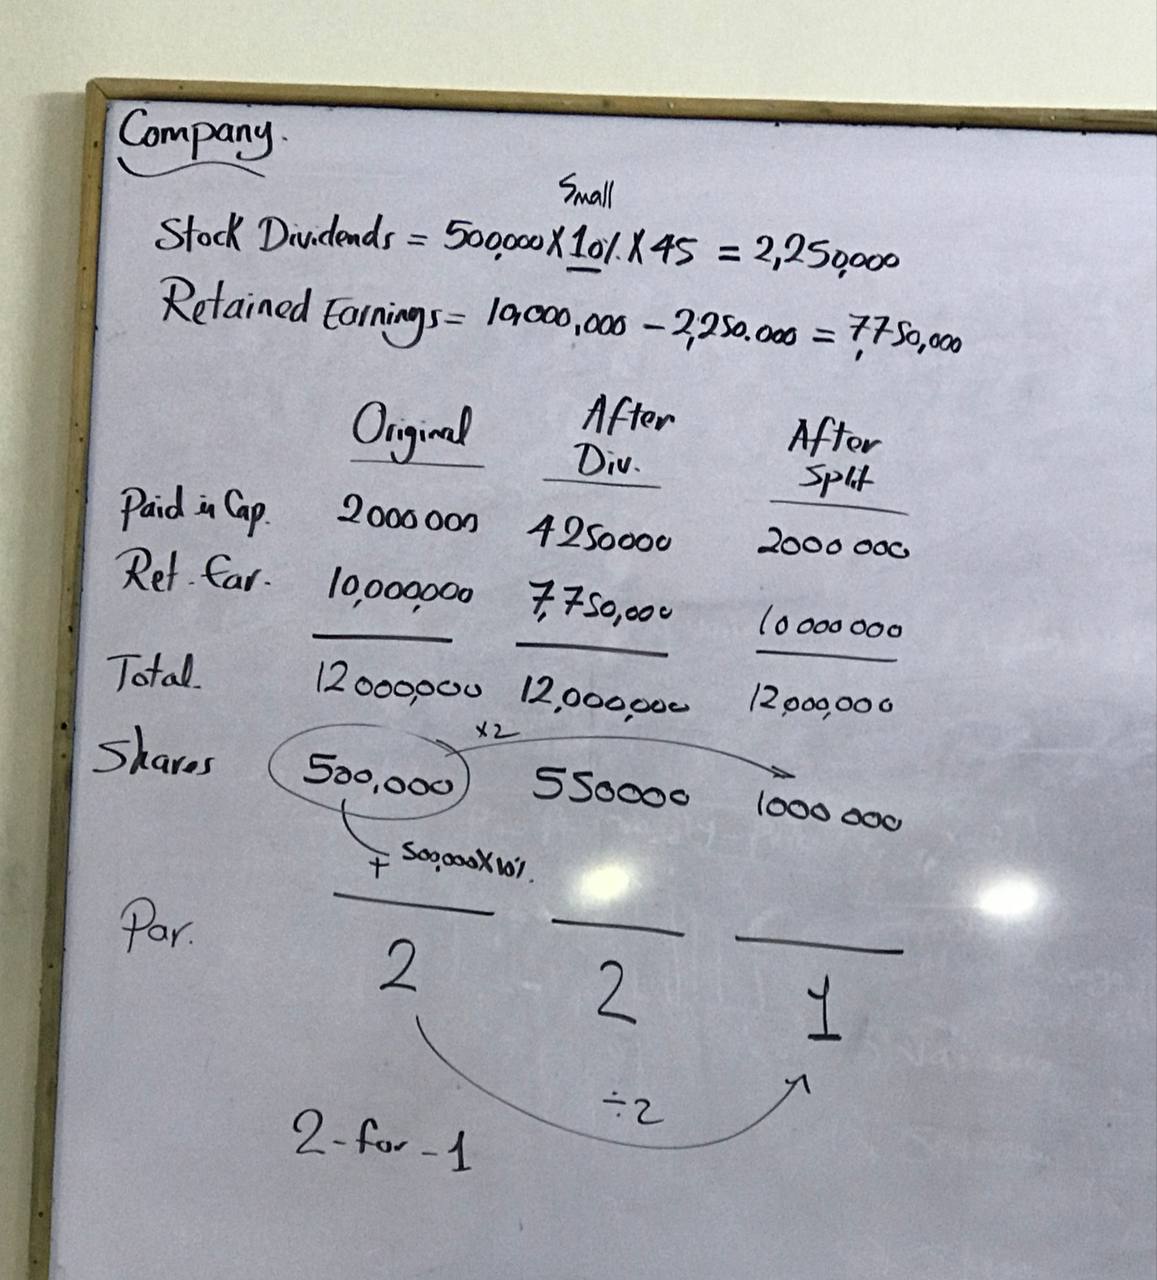 Company.
Small
Stock Dividends = 500,000 X 10% X 45 = 2,250,000
Retained Earnings = 10,000,000 - 2,250.000 = 7,750,000
Original After Div. After Split
Paid in Cap. 2000 000 4250000 2000 000
Ret. Ear. 10,000,000 7,750,000 10 000 000
Total. 12 000,000 12,000,000 12,000,000
x2
Shares 500,000 550000 1000 000
+ 500,000X10%.
Par. 2 2 1
÷2
2-for-1